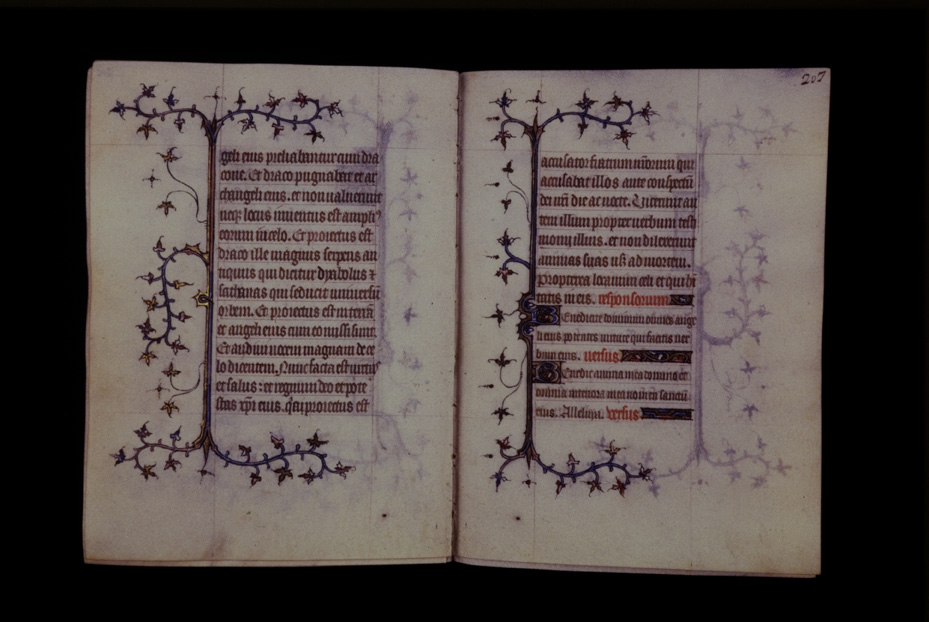 geli eius preliabantur cum dra
cone. Et draco pugnabat et ar
changeli eius. et non ualuerunt
neqz locus inuentus est ampli9
eorum in celo. Et proiectus est
draco ille magnus serpens an
tiquus qui dicitur dyabolus et
sathanas qui seducit uniuersū
orbem. Et proiectus est in terrā
et angeli eius cum eo missi sunt.
Et audiui uocem magnam de ce
lo dicentem. Nunc facta est uirtus
et salus: et regnum deo et pote
stas xpi eius. qui proiectus est
207
accusator fratrum nrorum qui
accusabat illos ante conspectū
dei nri die ac nocte. Et uicerunt au
tem illum propter uerbum testi
monij illius. et non dilexerunt
animas suas usqz ad mortem.
Propterea letamini celi et qui hi
tatis in eis. responsorium
Benedicite dominum omnes ange
li eius potentes uirtute qui facitis uer
bum eius. uersus
Benedic anima mea domino et
omnia interiora mea nomen sanctū
eius. Alleluya. versus